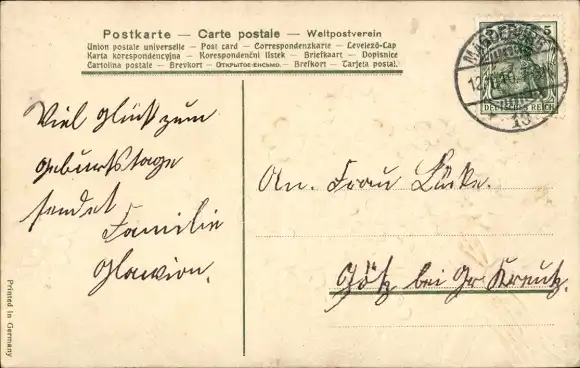 Postkarte — Carte postale — Weltpostverein
Union postale universelle — Post card — Correspondenzkarte — Levelező-Lap
Karta korespondencyjna — Korespondenční lístek — Briefkaart — Dopisnice
Cartolina postale — Brevkort — Открытое письмо — Brefkort — Tarjeta postal.
5
MAGDEBURG
12.
10
DEUTSCHES REICH
Viel Glück zum
Geburtstage
sendet
Familie
Glawion.
An. Frau Lücke.
Götz bei Gr. Kreutz.
Printed in Germany